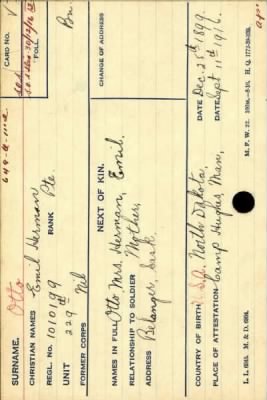 649-a-11102
SURNAME. Otto
CHRISTIAN NAMES Emil Herman
REGL. No. 1010199 RANK Pte
UNIT 229th
FORMER CORPS Nil
CARD NO. V
FOLL
Bn
NEXT OF KIN.
NAMES IN FULL Otto Mrs. Herman, Emil.
RELATIONSHIP TO SOLDIER Mother,
ADDRESS Belanger, Sask.
CHANGE OF ADDRESS
COUNTRY OF BIRTH U.S.A. North Dakota. DATE Dec. 25th 1899
PLACE OF ATTESTATION Camp Hughes Man, DATE Sept 11th 1916.
L. L. M. & D.
M. F. W. 22. H. Q. 1772-39-